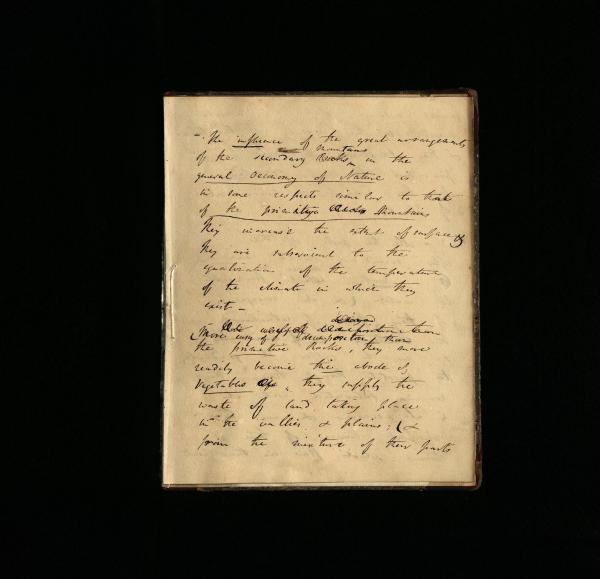 - The influence of the great arrangements
of the secondary Rocks Mountains in the
general Œconomy of Nature is
in some respects similar to that
of the primitive Mountains
They increase the extent of surface &
they are subservient to the
equalization of the temperature
of the climate in which they
exist -
More easy of decomposition than
the primitive Rocks, they more
readily become the abode of
Vegetables life, they supply the
waste of land taking place
in the vallies & plains; &
from the mixture of their parts